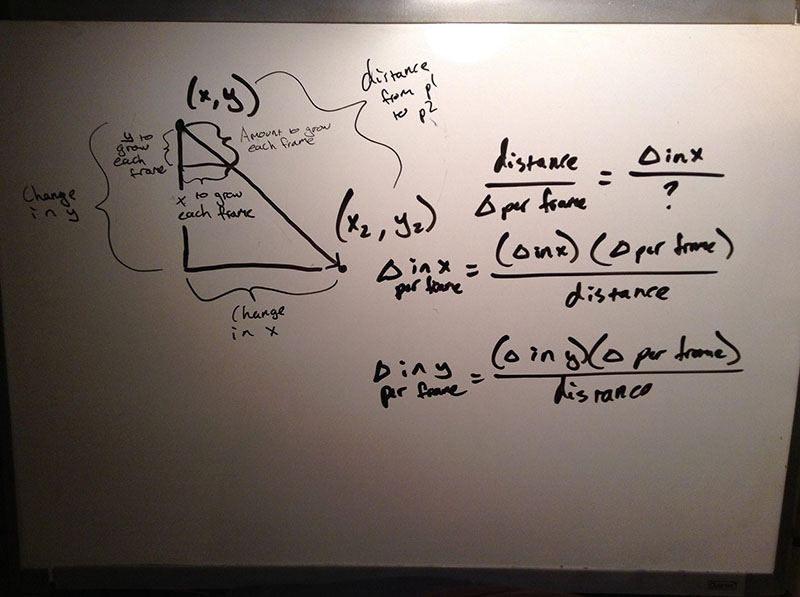 (x, y)
distance
from p1
to p2
y to
grow
each
frame
Amount to grow
each frame
x to grow
each frame
Change
in y
(x₂, y₂)
Change
in x
distance / Δ per frame = Δ in x / ?
Δ in x per frame = (Δ in x) (Δ per frame) / distance
Δ in y per frame = (Δ in y)(Δ per frame) / disrance